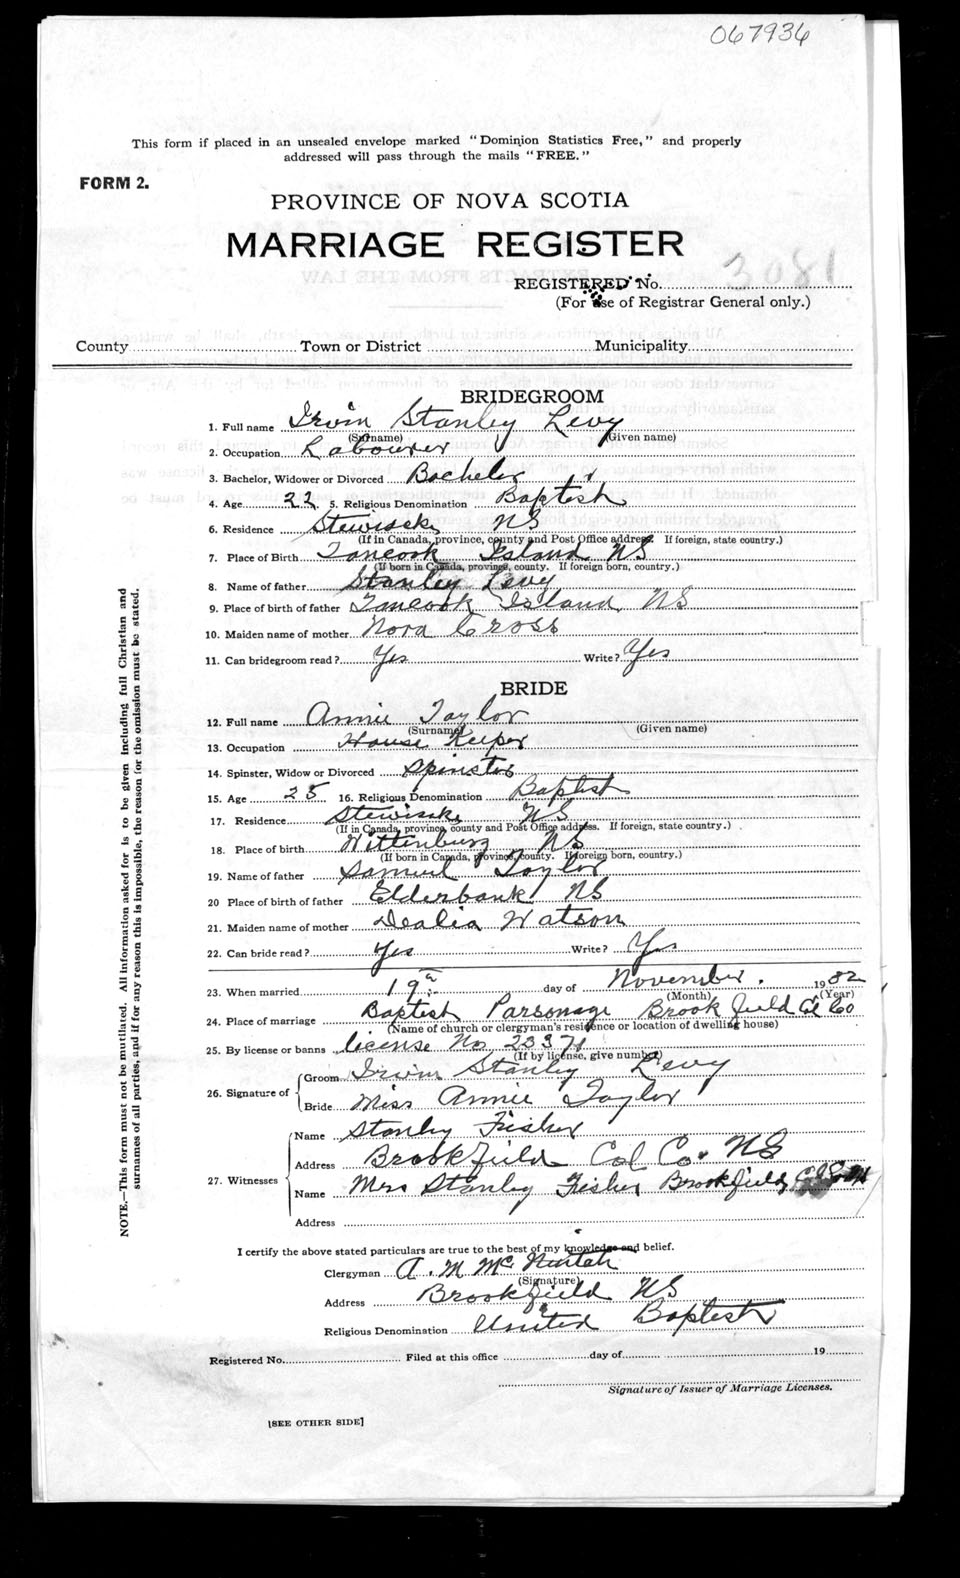 067936
This form if placed in an unsealed envelope marked "Dominion Statistics Free," and properly
addressed will pass through the mails "FREE."
FORM 2.
PROVINCE OF NOVA SCOTIA
MARRIAGE REGISTER
REGISTERED No. 3081
(For use of Registrar General only.)
County Town or District Municipality
BRIDEGROOM
1. Full name Irvin Stanley Levy
(Surname) (Given name)
2. Occupation Labourer
3. Bachelor, Widower or Divorced Bachelor
4. Age 22 5. Religious Denomination Baptist
6. Residence Stewiacke NS
(If in Canada, province, county and Post Office address. If foreign, state country.)
7. Place of Birth Tancook Island NS
(If born in Canada, province, county. If foreign born, country.)
8. Name of father Stanley Levy
9. Place of birth of father Tancook Island NS
10. Maiden name of mother Nora Cross
11. Can bridegroom read? Yes Write? Yes
BRIDE
12. Full name Annie Taylor
(Surname) (Given name)
13. Occupation House Keeper
14. Spinster, Widow or Divorced Spinster
15. Age 25 16. Religious Denomination Baptist
17. Residence Stewiacke NS
(If in Canada, province, county and Post Office address. If foreign, state country.)
18. Place of birth Wittenburg NS
(If born in Canada, province, county. If foreign born, country.)
19. Name of father Samuel Taylor
20 Place of birth of father Elderbank NS
21. Maiden name of mother Dealia Watson
22. Can bride read? Yes Write? Yes
23. When married 19 day of November. 1932
(Month) (Year)
24. Place of marriage Baptist Parsonage Brookfield Col Co
(Name of church or clergyman's residence or location of dwelling house)
25. By license or banns license No 23371
(If by license, give number)
26. Signature of Groom Irvin Stanley Levy
Bride Miss Annie Taylor
27. Witnesses Name Stanley Fisher
Address Brookfield Col Co. NS
Name Mrs Stanley Fisher Brookfield
Address
I certify the above stated particulars are true to the best of my knowledge and belief.
Clergyman A. M. McNintch
(Signature)
Address Brookfield NS
Religious Denomination United Baptist
Registered No. Filed at this office day of 19
Signature of Issuer of Marriage Licenses.
[SEE OTHER SIDE]
NOTE.—This form must not be mutilated. All information asked for is to be given including full Christian and
surnames of all parties, and if for any reason this is impossible, the reason for the omission must be stated.